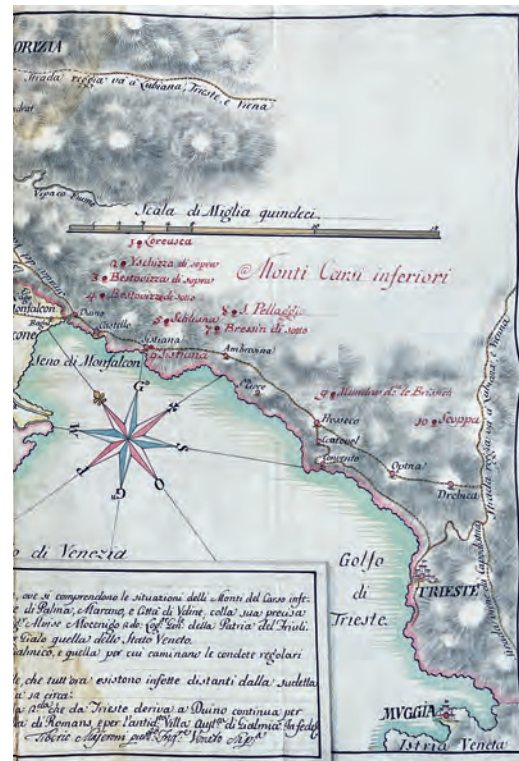 ORIZIA
Strada reggia va a Lubiana, Trieste, e Viena
Vipaco Fiume
Scala di Miglia quindeci.
10
1 Coreusca
2 Vschizza di sopra
3 Bestovizza di sopra
4 Bestovizza di sotto
Monti Carsi inferiori
5 Schliana
8 S. Pellaggio
7 Bressin di sotto
onfalcon
Duino
Castello
Sistiana
Ambrosina
Seno di Monfalcon
9
10 Scoppa
Prosseco
Contovel
Convento
Opina
Strada regia va a Lubiana, e Vienna
G
S
O
P
o di Venezia
Golfo
di
Trieste
TRIESTE
, ove si comprendono le situazioni delli Monti del Carso inf:
e di Palma, Marano, e Città di Vdine, colla sua precisa
Aloise Mocenigo della Patria del Friuli.
Gialo quella dello Stato Veneto.
e quella per cui caminano le condote regolari
le, che tutt'ora esistono infette distanti dalla sudetta
a 12 circa:
che da Trieste deriva a Duino continua per
a di Romans, e per l'antic Villa di Gialmico. In fede
MVGGIA
Istria Veneta